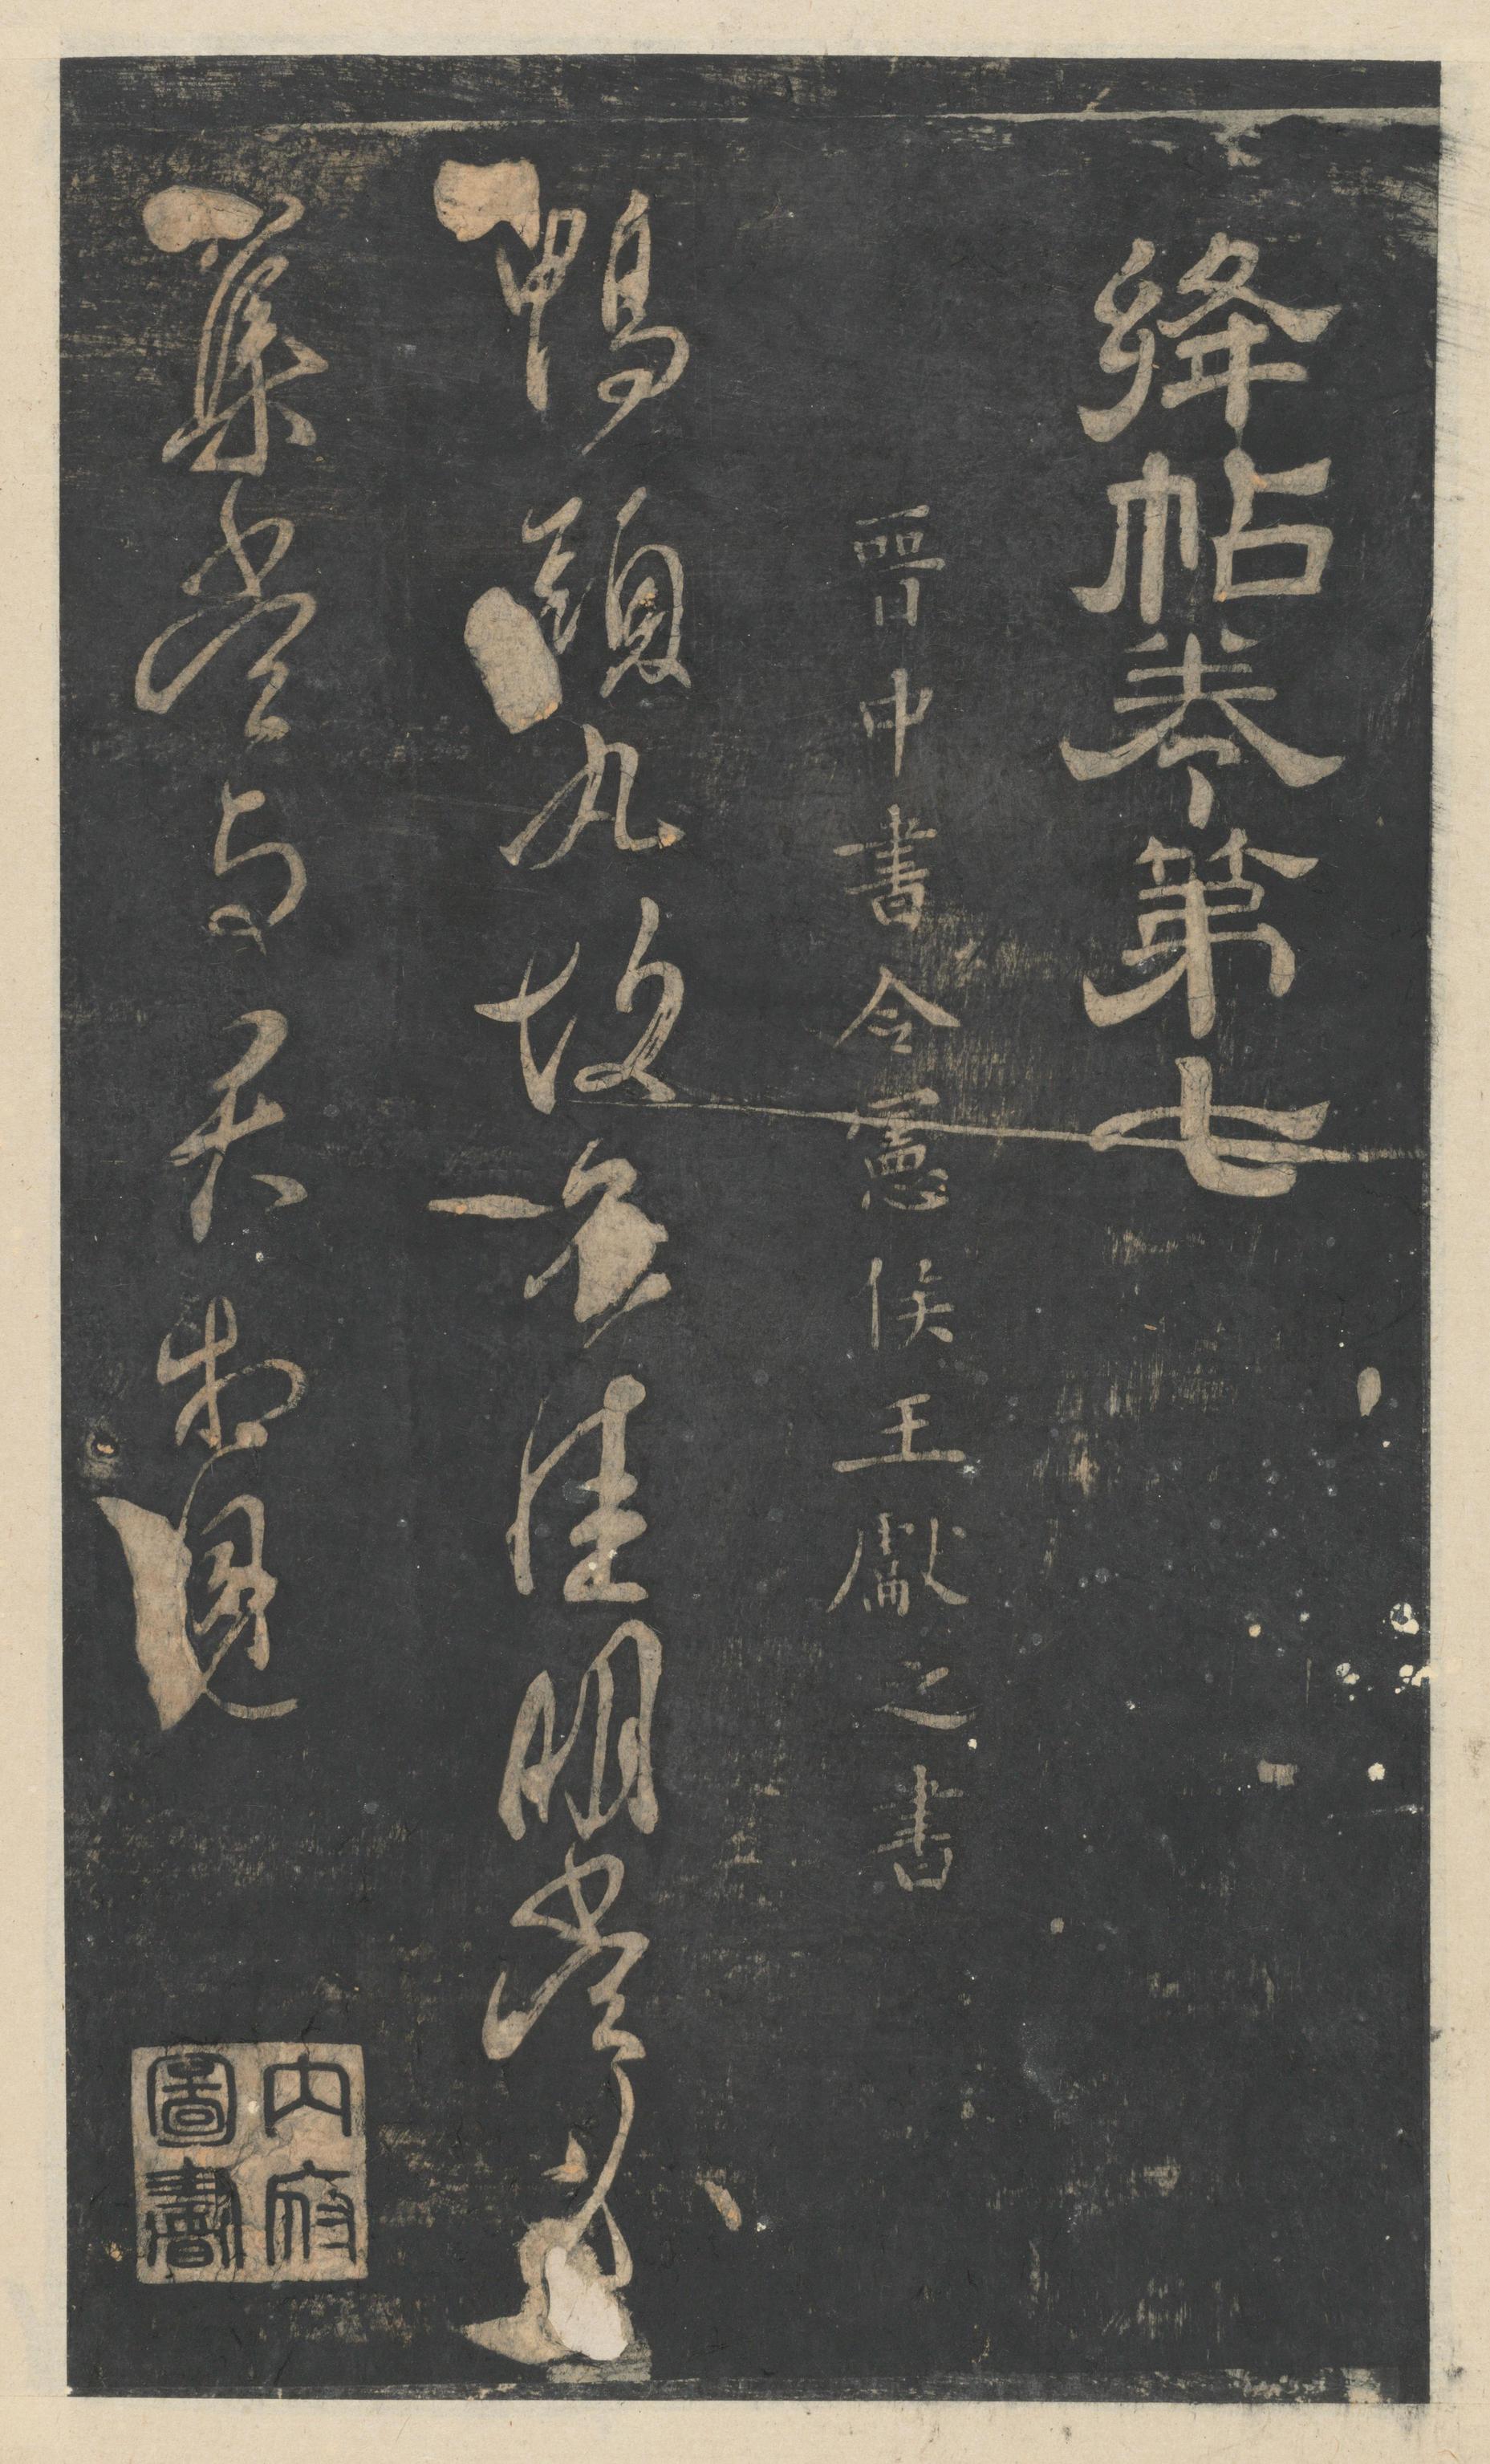 絳帖卷第七
晉中書令憲侯王獻之書
鴨頭丸故不佳明當必
集當與君相見
內府圖書